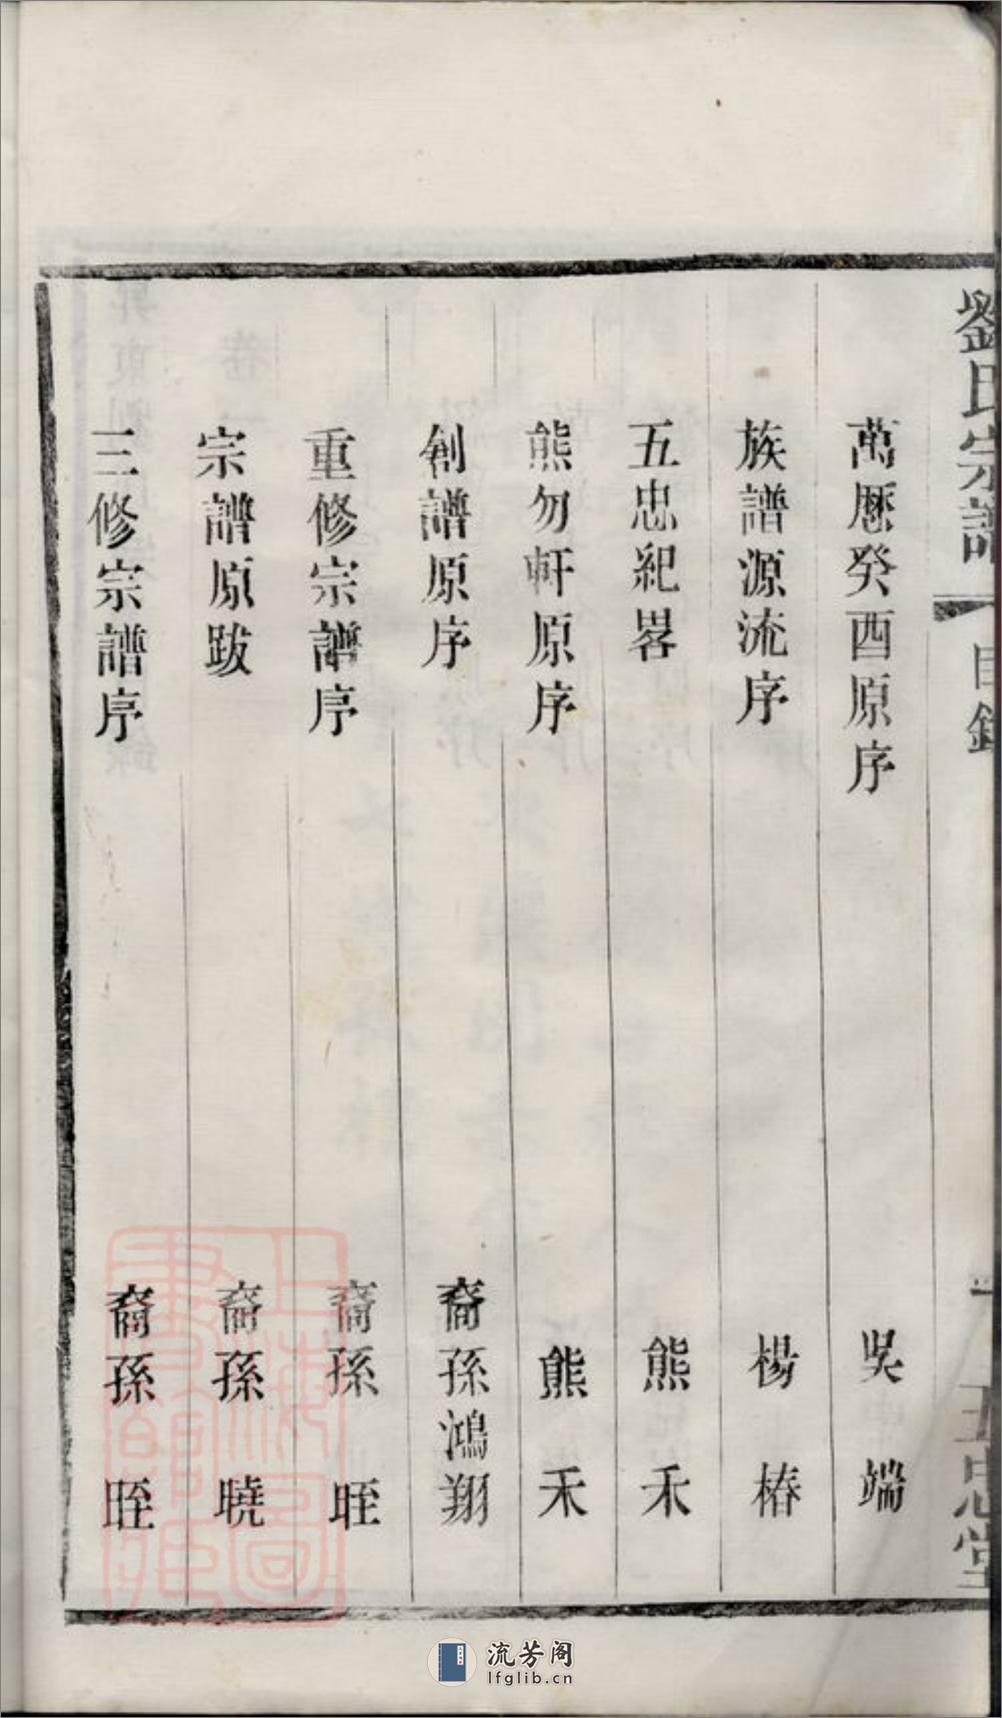 劉氏宗譜 目錄 一 五忠堂
萬厯癸酉原序 吳端
族譜源流序 楊椿
五忠紀畧 熊禾
熊勿軒原序 熊禾
創譜原序 裔孫鴻翔
重修宗譜序 裔孫 晊
宗譜原跋 裔孫 曉
三修宗譜序 裔孫 晊
上海圖書館藏
流芳阁
lfglib.cn